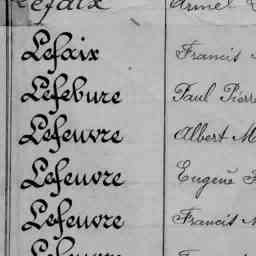 Lefaix Armel
Lefaix Francis
Lefebure Paul Pierre
Lefeuvre Albert M
Lefeuvre Eugene
Lefeuvre Francis
Lefeuvre